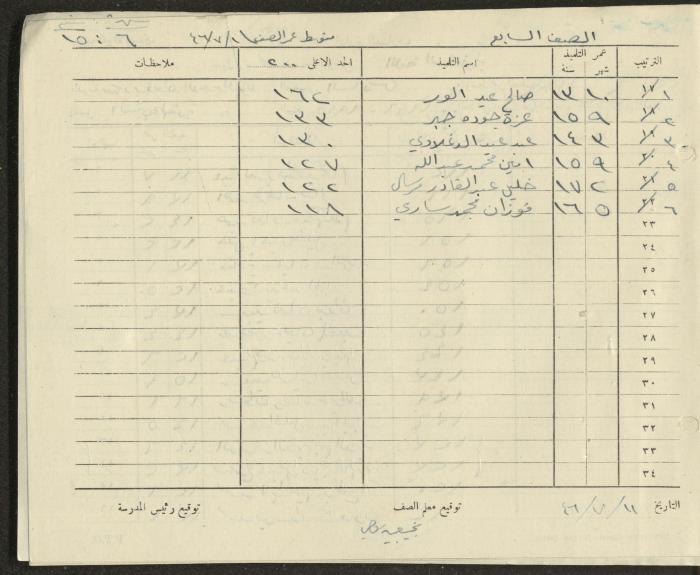 الصف السابع متوسط عمر الصف ٤٦/٧/١ ٦ : ١٥
الترتيب عمر التلميذ شهر سنة اسم التلميذ الحد الاعلى ٢٠٠ ملاحظات
١٧/١ ١٠ ١٣ صالح عيد ١٦٢
١٨/٢ ٩ ١٥ عزة جوده جبر ١٣٣
١٩/٣ ٣ ١٤ عبد ١٣٠
٢٠/٤ ٩ ١٥ امين محمد عبدالله ١٢٧
٢١/٥ ٢ ١٧ خليل عبد القادر ١٢٢
٢٢/٦ ٥ ١٦ فوزان محمد ساري ١١٨
٢٣
٢٤
٢٥
٢٦
٢٧
٢٨
٢٩
٣٠
٣١
٣٢
٣٣
٣٤
التاريخ ١١/٧/٤٦ توقيع معلم الصف توقيع رئيس المدرسة